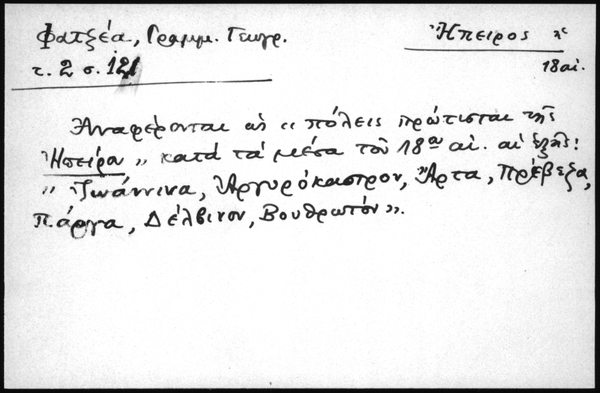 Φατζέα, Γραμμ. Γεωγρ.
Ἤπειρος
τ. 2 σ. 121
18 αἰ.
Ἀναφέρονται ὡς "πόλεις πρώτισται τῆς
Ἠπείρου" κατά τά μέσα τοῦ 18ου αἰ. αἱ ἑξῆς:
"Ἰωάννινα, Ἀργυρόκαστρον, Ἄρτα, Πρέβεζα,
Πάργα, Δέλβινον, Βουθρωτόν".